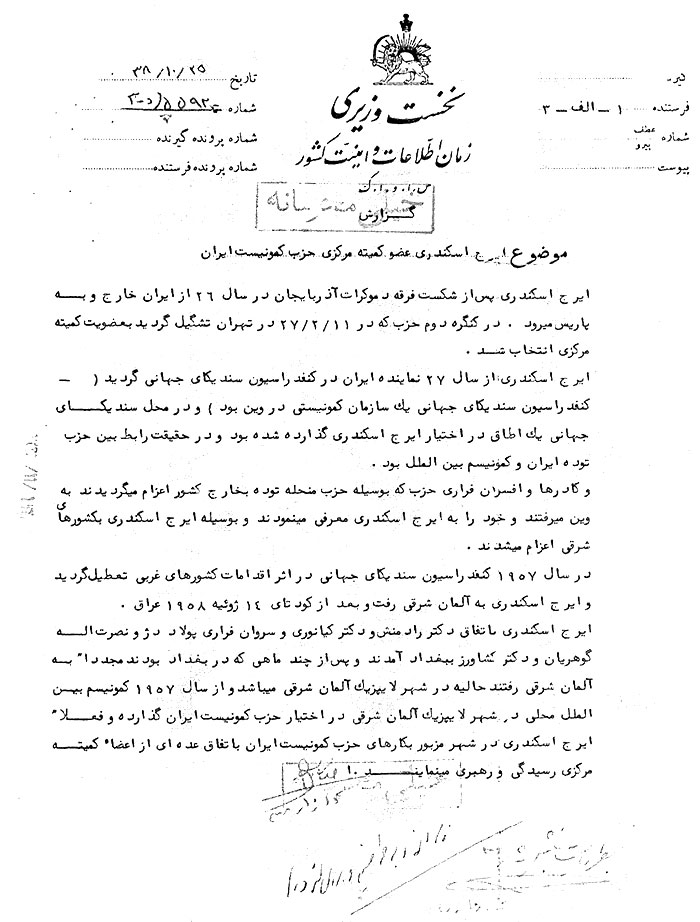 نخست وزیری
سازمان اطلاعات و امنیت کشور
س.ا.و.ا.ک
تاریخ ۳۸/۱۰/۲۵
شماره
شماره پرونده گیرنده
شماره پرونده فرستنده
فرستنده ۱ - الف - ۳
شماره عطف پیرو
پیوست
خیلی محرمانه
گزارش
موضوع ایرج اسکندری عضو کمیته مرکزی حزب کمونیست ایران
ایرج اسکندری پس از شکست فرقه دموکرات آذربایجان در سال ۲۶ از ایران خارج و بـــه
پاریس میرود . در کنگره دوم حزب که در ۲۷/۲/۱۱ در تهران تشگیل گردید بعضویت کمیته
مرکزی انتخاب شـد .
ایرج اسکندری از سال ۲۷ نماینده ایران در کنفدراسیون سندیکای جهانی گردید ( ــ
کنفدراسیون سندیکای جهانی یك سازمان کمونیستی در وین بود ) و در محل سندیکـــای
جهانی یك اطاق در اختیار ایرج اسکندری گذارده شده بود و در حقیقت رابط بین حزب
توده ایران و کمونیسم بین الملل بود .
و کادرها و افسران فراری حزب که بوسیله حزب منحله توده بخارج کشور اعزام میگردیدند به
وین میرفتند و خود را به ایرج اسکندری معرفی مینمودند و بوسیله ایرج اسکندری بکشورهای
شرقی اعزام میشدند .
در سال ۱۹۵۷ کنفدراسیون سندیکای جهانی در اثر اقدامات کشورهای غربی تعطیل گردید
و ایرج اسکندری به آلمان شرقی رفت و بعد از کودتای ۱۴ ژوئیه ۱۹۵۸ عراق .
ایرج اسکندری باتفاق دکتر رادمنش و دکتر کیانوری و سروان فراری پولاد دژ و نصرت الـــه
گوهریان و دکتر کشاورز ببغداد آمدند و پس از چند ماهی که در بغداد بودند مجددا" به
آلمان شرقی رفتند حالیه در شهر لایپزیك آلمان شرقی میباشد و از سال ۱۹۵۷ کمونیسم بیـن
الملل محلی در شهر لایپزیك آلمان شرقی در اختیار حزب کمونیست ایران گذارده و فعــلا"
ایرج اسکندری در شهر مزبور بکارهای حزب کمونیست ایران باتفاق عده ای از اعضا' کمیتــه
مرکزی رسیدگی و رهبری مینماینــــد .